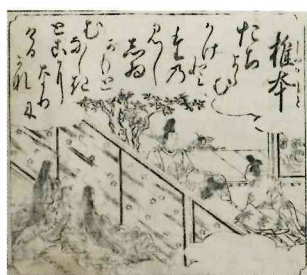 椎本
たちよらむ
かけと
たのみし
しゐ
かもと
むなしき
とこに
なりに
けるかな